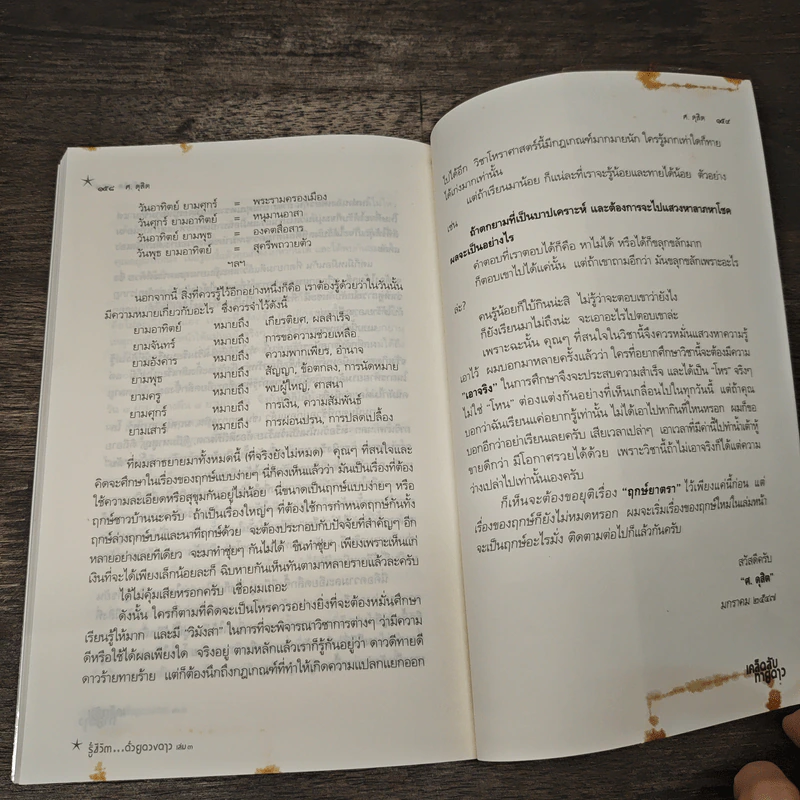 ๑๕๘ ศ. ดุสิต
วันอาทิตย์ ยามศุกร์ = พระรามครองเมือง
วันศุกร์ ยามอาทิตย์ = หนุมานอาสา
วันอาทิตย์ ยามพุธ = องคตสื่อสาร
วันพุธ ยามอาทิตย์ = สุครีพถวายตัว
ฯลฯ
นอกจากนี้ สิ่งที่ควรรู้ไว้อีกอย่างหนึ่งก็คือ เราต้องรู้ด้วยว่าในวันนั้น
มีความหมายเกี่ยวกับอะไร ซึ่งควรจำไว้ดังนี้
ยามอาทิตย์ หมายถึง เกียรติยศ, ผลสำเร็จ
ยามจันทร์ หมายถึง การขอความช่วยเหลือ
ยามอังคาร หมายถึง ความพากเพียร, อำนาจ
ยามพุธ หมายถึง สัญญา, ข้อตกลง, การนัดหมาย
ยามครู หมายถึง พบผู้ใหญ่, ศาสนา
ยามศุกร์ หมายถึง การเงิน, ความสัมพันธ์
ยามเสาร์ หมายถึง การผ่อนปรน, การปลดเปลื้อง
ที่ผมสาธยายมาทั้งหมดนี้ (ที่จริงยังไม่หมด) คุณๆ ที่สนใจและ
คิดจะศึกษาในเรื่องของฤกษ์แบบง่ายๆ นี่ก็คงเห็นแล้วว่า มันเป็นเรื่องที่ต้อง
ใช้ความละเอียดหรือสุขุมกันอยู่ไม่น้อย นี่ขนาดเป็นฤกษ์แบบง่ายๆ หรือ
ฤกษ์ชาวบ้านนะครับ ถ้าเป็นเรื่องใหญ่ๆ ที่ต้องใช้การกำหนดฤกษ์กันทั้ง
ฤกษ์ล่างฤกษ์บนและนาทีฤกษ์ด้วย จะต้องประกอบกับปัจจัยที่สำคัญๆ อีก
หลายอย่างเลยทีเดียว จะมาทำชุ่ยๆ กันไม่ได้ ขืนทำชุ่ยๆ เพียงเพราะเห็นแก่
เงินที่จะได้เพียงเล็กน้อยละก็ ฉิบหายกันเห็นทันตามาหลายรายแล้วละครับ
ได้ไม่คุ้มเสียหรอกครับ เชื่อผมเถอะ
ดังนั้น ใครก็ตามที่คิดจะเป็นโหรควรอย่างยิ่งที่จะต้องหมั่นศึกษา
เรียนรู้ให้มาก และมี "วิมังสา" ในการที่จะพิจารณาวิชาการต่างๆ ว่ามีความ
ดีหรือใช้ได้ผลเพียงใด จริงอยู่ ตามหลักแล้วเราก็รู้กันอยู่ว่า ดาวดีทายดี
ดาวร้ายทายร้าย แต่ก็ต้องนึกถึงกฎเกณฑ์ที่ทำให้เกิดความแปลกแยกออก
รู้ชีวิต...ด้วยดวงดาว เล่ม ๓
ศ. ดุสิต ๑๕๙
ไปได้อีก วิชาโหราศาสตร์นี้มีกฎเกณฑ์มากมายนัก ใครรู้มากเท่าใดก็ทาย
ได้เก่งมากเท่านั้น
แต่ถ้าเรียนมาน้อย ก็แน่ละที่เราจะรู้น้อยและทายได้น้อย ตัวอย่าง
เช่น ถ้าตกยามที่เป็นบาปเคราะห์ และต้องการจะไปแสวงหาลาภหาโชค
ผลจะเป็นอย่างไร
คำตอบที่เราตอบได้ก็คือ หาไม่ได้ หรือได้ก็ขลุกขลักมาก
ก็ตอบเขาไปได้แค่นั้น แต่ถ้าเขาถามอีกว่า มันขลุกขลักเพราะอะไร
ล่ะ?
คนรู้น้อยก็ใบ้กินน่ะสิ ไม่รู้ว่าจะตอบเขาว่ายังไง
ก็ยังเรียนมาไม่ถึงน่ะ จะเอาอะไรไปตอบเขาล่ะ
เพราะฉะนั้น คุณๆ ที่สนใจในวิชานี้จึงควรหมั่นแสวงหาความรู้
เอาไว้ ผมบอกมาหลายครั้งแล้วว่า ใครที่อยากศึกษาวิชานี้จะต้องมีความ
"เอาจริง" ในการศึกษาจึงจะประสบความสำเร็จ และได้เป็น "โหร" จริงๆ
ไม่ใช่ "โหน" ต่องแต่งกันอย่างที่เห็นเกลื่อนไปในทุกวันนี้ แต่ถ้าคุณ
บอกว่าฉันเรียนแค่อยากรู้เท่านั้น ไม่ได้เอาไปหากินที่ไหนหรอก ผมก็ขอ
บอกอีกว่าอย่าเรียนเลยครับ เสียเวลาเปล่าๆ เอาเวลาที่มีค่านี้ไปทำน้ำเต้าหู้
ขายดีกว่า มีโอกาสรวยได้ด้วย เพราะวิชานี้ถ้าไม่เอาจริงก็ได้แต่ความ
ว่างเปล่าไปเท่านั้นเองครับ
ก็เห็นจะต้องขอยุติเรื่อง "ฤกษ์ยาตรา" ไว้เพียงแค่นี้ก่อน แต่
เรื่องของฤกษ์ก็ยังไม่หมดหรอก ผมจะเริ่มเรื่องของฤกษ์ใหม่ในเล่มหน้า
จะเป็นฤกษ์อะไรมั่ง ติดตามต่อไปก็แล้วกันครับ
สวัสดีครับ
"ศ. ดุสิต"
มกราคม ๒๕๔๗
เคล็ดลับ
ทายดาว